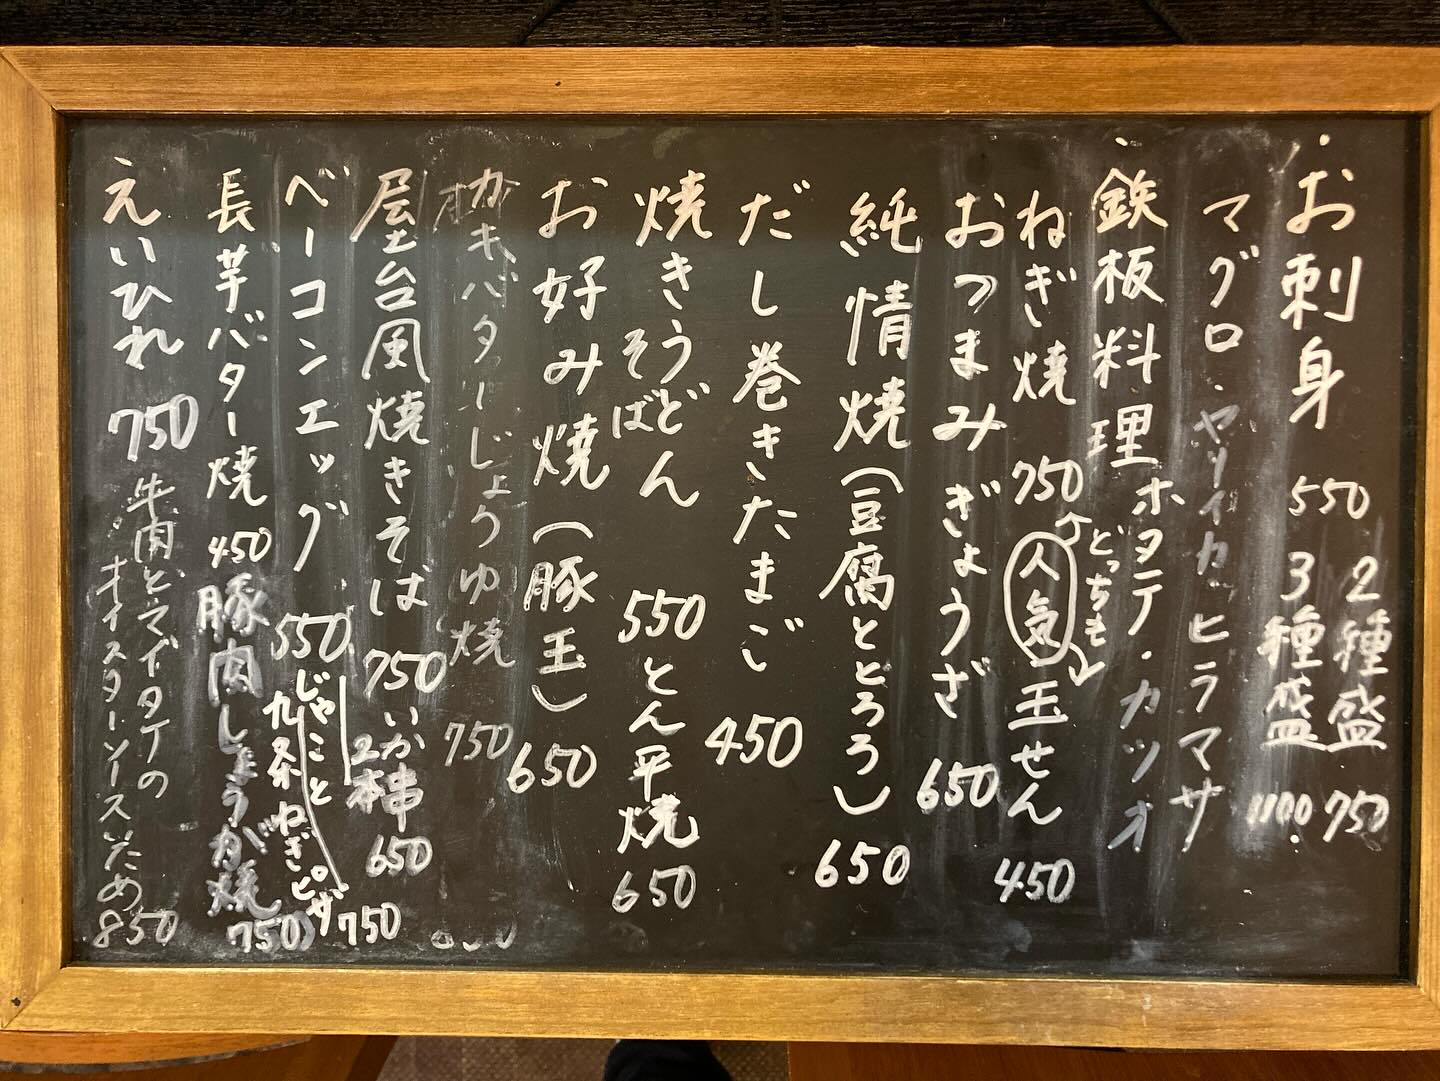 お刺身 550 2種盛 750
3種盛 1100
マグロ・ヤリイカ ヒラマサ
ホタテ・カツオ
鉄板料理
ねぎ焼 750
どっちも
人気
玉せん 450
おつまみぎょうざ 650
純情焼(豆腐ととろろ) 650
だし巻きたまご 450
焼きうどん 550
そば
とん平焼 650
お好み焼(豚玉) 650
カキバターじょうゆ焼 750
屋台風焼きそば 750
いか串 650
2本
ベーコンエッグ 550
じゃこと
九条ねぎピザ 750
長芋バター焼 450
豚肉しょうが焼 750
えいひれ 750
牛肉とマイタケの
オイスターソースいため 850